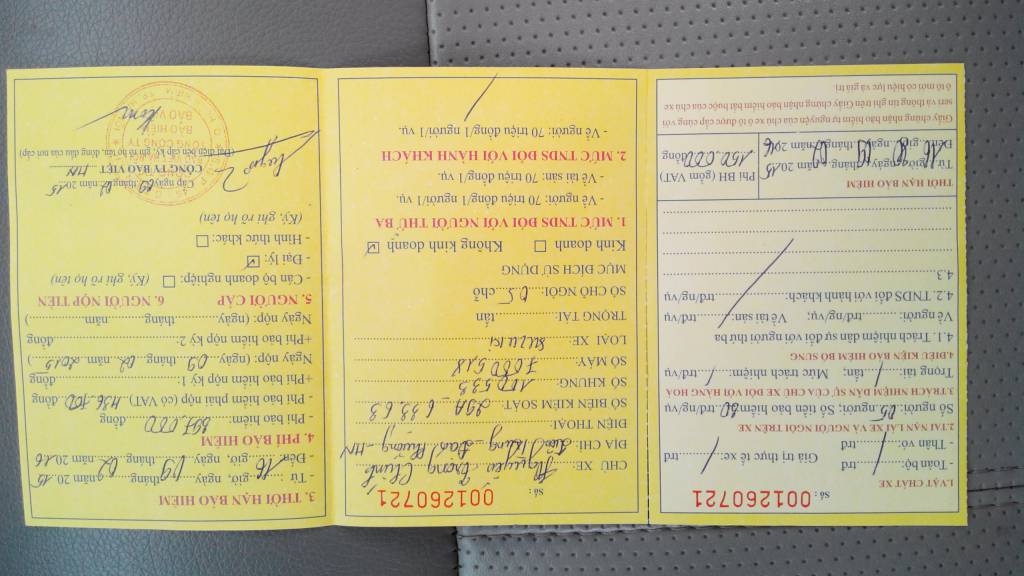 Số: 001260721
CHỦ XE: Nguyễn Trọng Chinh
ĐỊA CHỈ: Đan Phượng - HN
ĐIỆN THOẠI
SỐ BIỂN KIỂM SOÁT 29A-633.63
SỐ KHUNG: 100535
SỐ MÁY: 7000518
LOẠI XE: SUZUKI
TRỌNG TẢI: tấn
SỐ CHỖ NGỒI: 05 chỗ
MỤC ĐÍCH SỬ DỤNG
Kinh doanh Không kinh doanh
1. MỨC TNDS ĐỐI VỚI NGƯỜI THỨ BA
- Về người: 70 triệu đồng/1 người/1 vụ.
- Về tài sản: 70 triệu đồng/1 vụ.
2. MỨC TNDS ĐỐI VỚI HÀNH KHÁCH
- Về người: 70 triệu đồng/1 người/1 vụ.
3. THỜI HẠN BẢO HIỂM
- Từ: giờ, ngày 09 tháng 02 năm 2015
- Đến: 16 giờ, ngày 09 tháng 02 năm 2016
4. PHÍ BẢO HIỂM
- Phí bảo hiểm: 397.000 đồng
- Phí bảo hiểm phải nộp (có VAT): 436.700 đồng
+Phí bảo hiểm nộp kỳ 1: đồng
Ngày nộp: (ngày 09 tháng 02 năm 2015)
+Phí bảo hiểm nộp kỳ 2: đồng
Ngày nộp: (ngày tháng năm )
5. NGƯỜI CẤP 6. NGƯỜI NỘP TIỀN
- Cán bộ doanh nghiệp: (Ký, ghi rõ họ tên)
- Đại lý:
- Hình thức khác:
(Ký, ghi rõ họ tên)
Cấp, ngày 09 tháng 02 năm 2015
CÔNG TY BẢO VIỆT HN
(Đại diện bên cấp ký, ghi rõ họ tên, đóng dấu tại nơi cấp)
TỔNG CÔNG TY
BẢO HIỂM
BẢO VIỆT
Số: 001260721
1.VẬT CHẤT XE
- Toàn bộ: trđ Giá trị thực tế xe: trđ
- Thân vỏ: trđ
2.TAI NẠN LÁI XE VÀ NGƯỜI NGỒI TRÊN XE
Số người: 05 người; Số tiền bảo hiểm: 30 trđ/ng/vụ
3.TRÁCH NHIỆM DÂN SỰ CỦA CHỦ XE ĐỐI VỚI HÀNG HOÁ
Trọng tải: tấn; Mức trách nhiệm: trđ/vụ
4.ĐIỀU KIỆN BẢO HIỂM BỔ SUNG
4.1. Trách nhiệm dân sự đối với người thứ ba
Về người: trđ/ng/vụ; Về tài sản: trđ/vụ
4.2. TNDS đối với hành khách: trđ/ng/vụ
4.3
THỜI HẠN BẢO HIỂM
Từ: giờ, ngày 09 tháng 02 năm 2015
Đến: giờ, ngày tháng năm 2016
Phí BH (gồm VAT)
150.000 đồng
Giấy chứng nhận bảo hiểm tự nguyện của chủ xe ô tô được cấp cùng với
seri và thông tin ghi trên Giấy chứng nhận bảo hiểm bắt buộc của chủ xe
ô tô mới có hiệu lực và giá trị